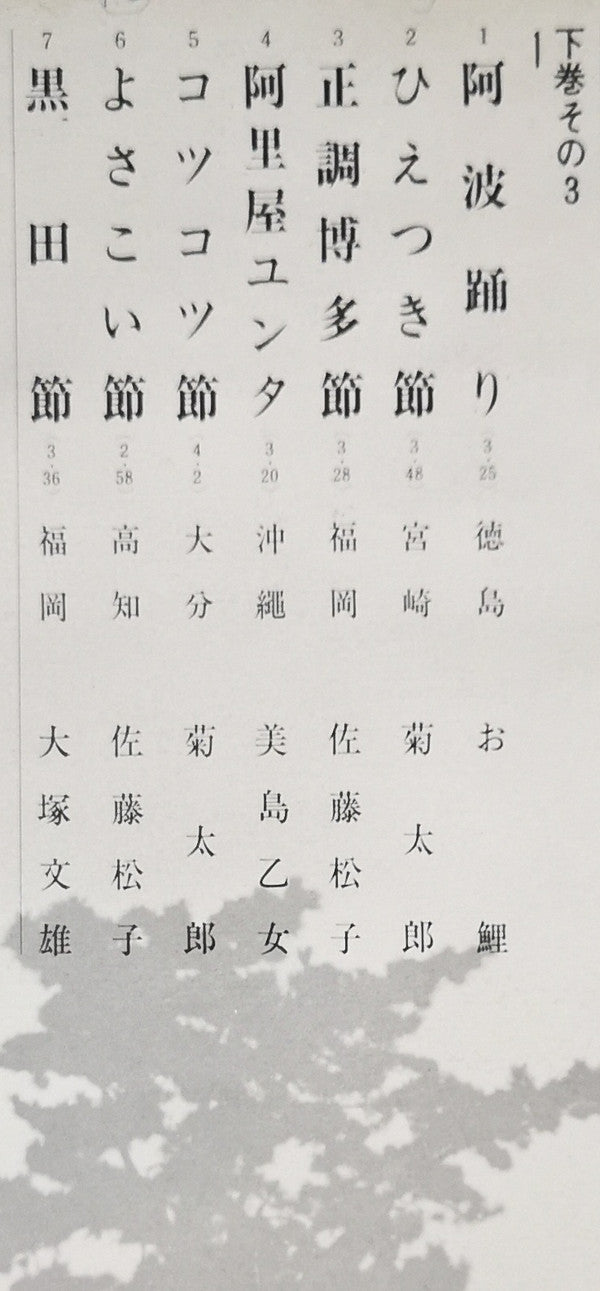 下巻その3
1 阿波踊り 3・25 徳島 お鯉
2 ひえつき節 3・48 宮崎 菊太郎
3 正調博多節 3・28 福岡 佐藤松子
4 阿里屋ユンタ 3・20 沖繩 美島乙女
5 コツコツ節 4・2 大分 菊太郎
6 よさこい節 2・58 高知 佐藤松子
7 黒田節 3・36 福岡 大塚文雄